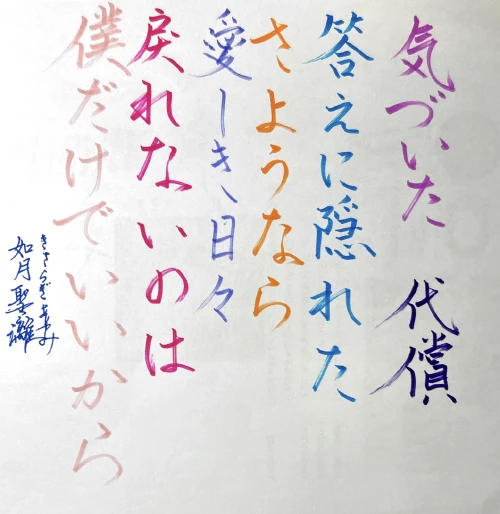 気づいた 代償
答えに隠れた
さようなら
愛しき日々
戻れないのは
僕だけでいいから
きさらぎきよみ
如月聖灘